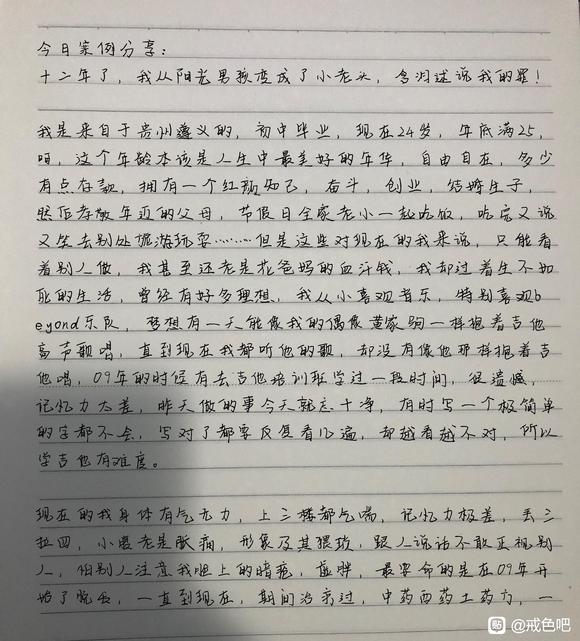 今日案例分享：
十二年了，我从阳光男孩变成了小老头，含泪述说我的罪！
我是来自于贵州遵义的，初中毕业，现在24岁，年底满25，
哎，这个年龄本该是人生中最美好的年华，自由自在，多少
有点存款，拥有一个红颜知己，奋斗，创业，结婚生子，
然后孝敬年迈的父母，节假日全家老小一起吃饭，吃完又说
又笑去别处旅游玩耍………但是这些对现在的我来说，只能看
着别人做，我甚至还老是花爸妈的血汗钱，我却过着生不如
死的生活，曾经有好多理想，我从小喜欢音乐，特别喜欢b
eyond乐队，梦想有一天能像我的偶像黄家驹一样抱着吉他
高声歌唱，直到现在我都听他的歌，却没有像他那样抱着吉
他唱，09年的时候有去吉他培训班学过一段时间，很遗憾，
记忆力太差，昨天做的事今天就忘干净，有时写一个极简单
的字都不会，写对了都要反复看几遍，却越看越不对，所以
学吉他有难度。
现在的我身体有气无力，上三楼都气喘，记忆力极差，丢三
拉四，小腿老是酸痛，形象及其猥琐，跟人说话不敢正视别
人，怕别人注意我脸上的暗疮，虚胖，最要命的是在09年开
始了脱发，一直到现在，期间治疗过，中药西药土药方，一
@戒色吧